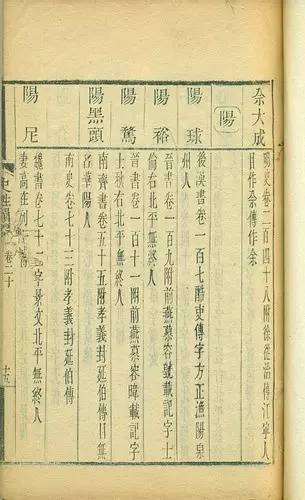 余大成
明史卷二百四十八附徐從治傳江寧人
目作佘傳作余
陽
陽球
後漢書卷一百七酷吏傳字方正漁陽泉
州人
陽裕
晉書卷一百九附前燕慕容皝載記字士
倫右北平無終人
陽騖
晉書卷一百十一附前燕慕容暐載記字
士秋右北平無終人
陽黑頭
南齊書卷五十五附孝義封延伯傳目無
名華陽人
南史卷七十三附孝義封延伯傳
陽尼
魏書卷七十二字景文北平無終人
妻高在列
史姓韻 卷二十